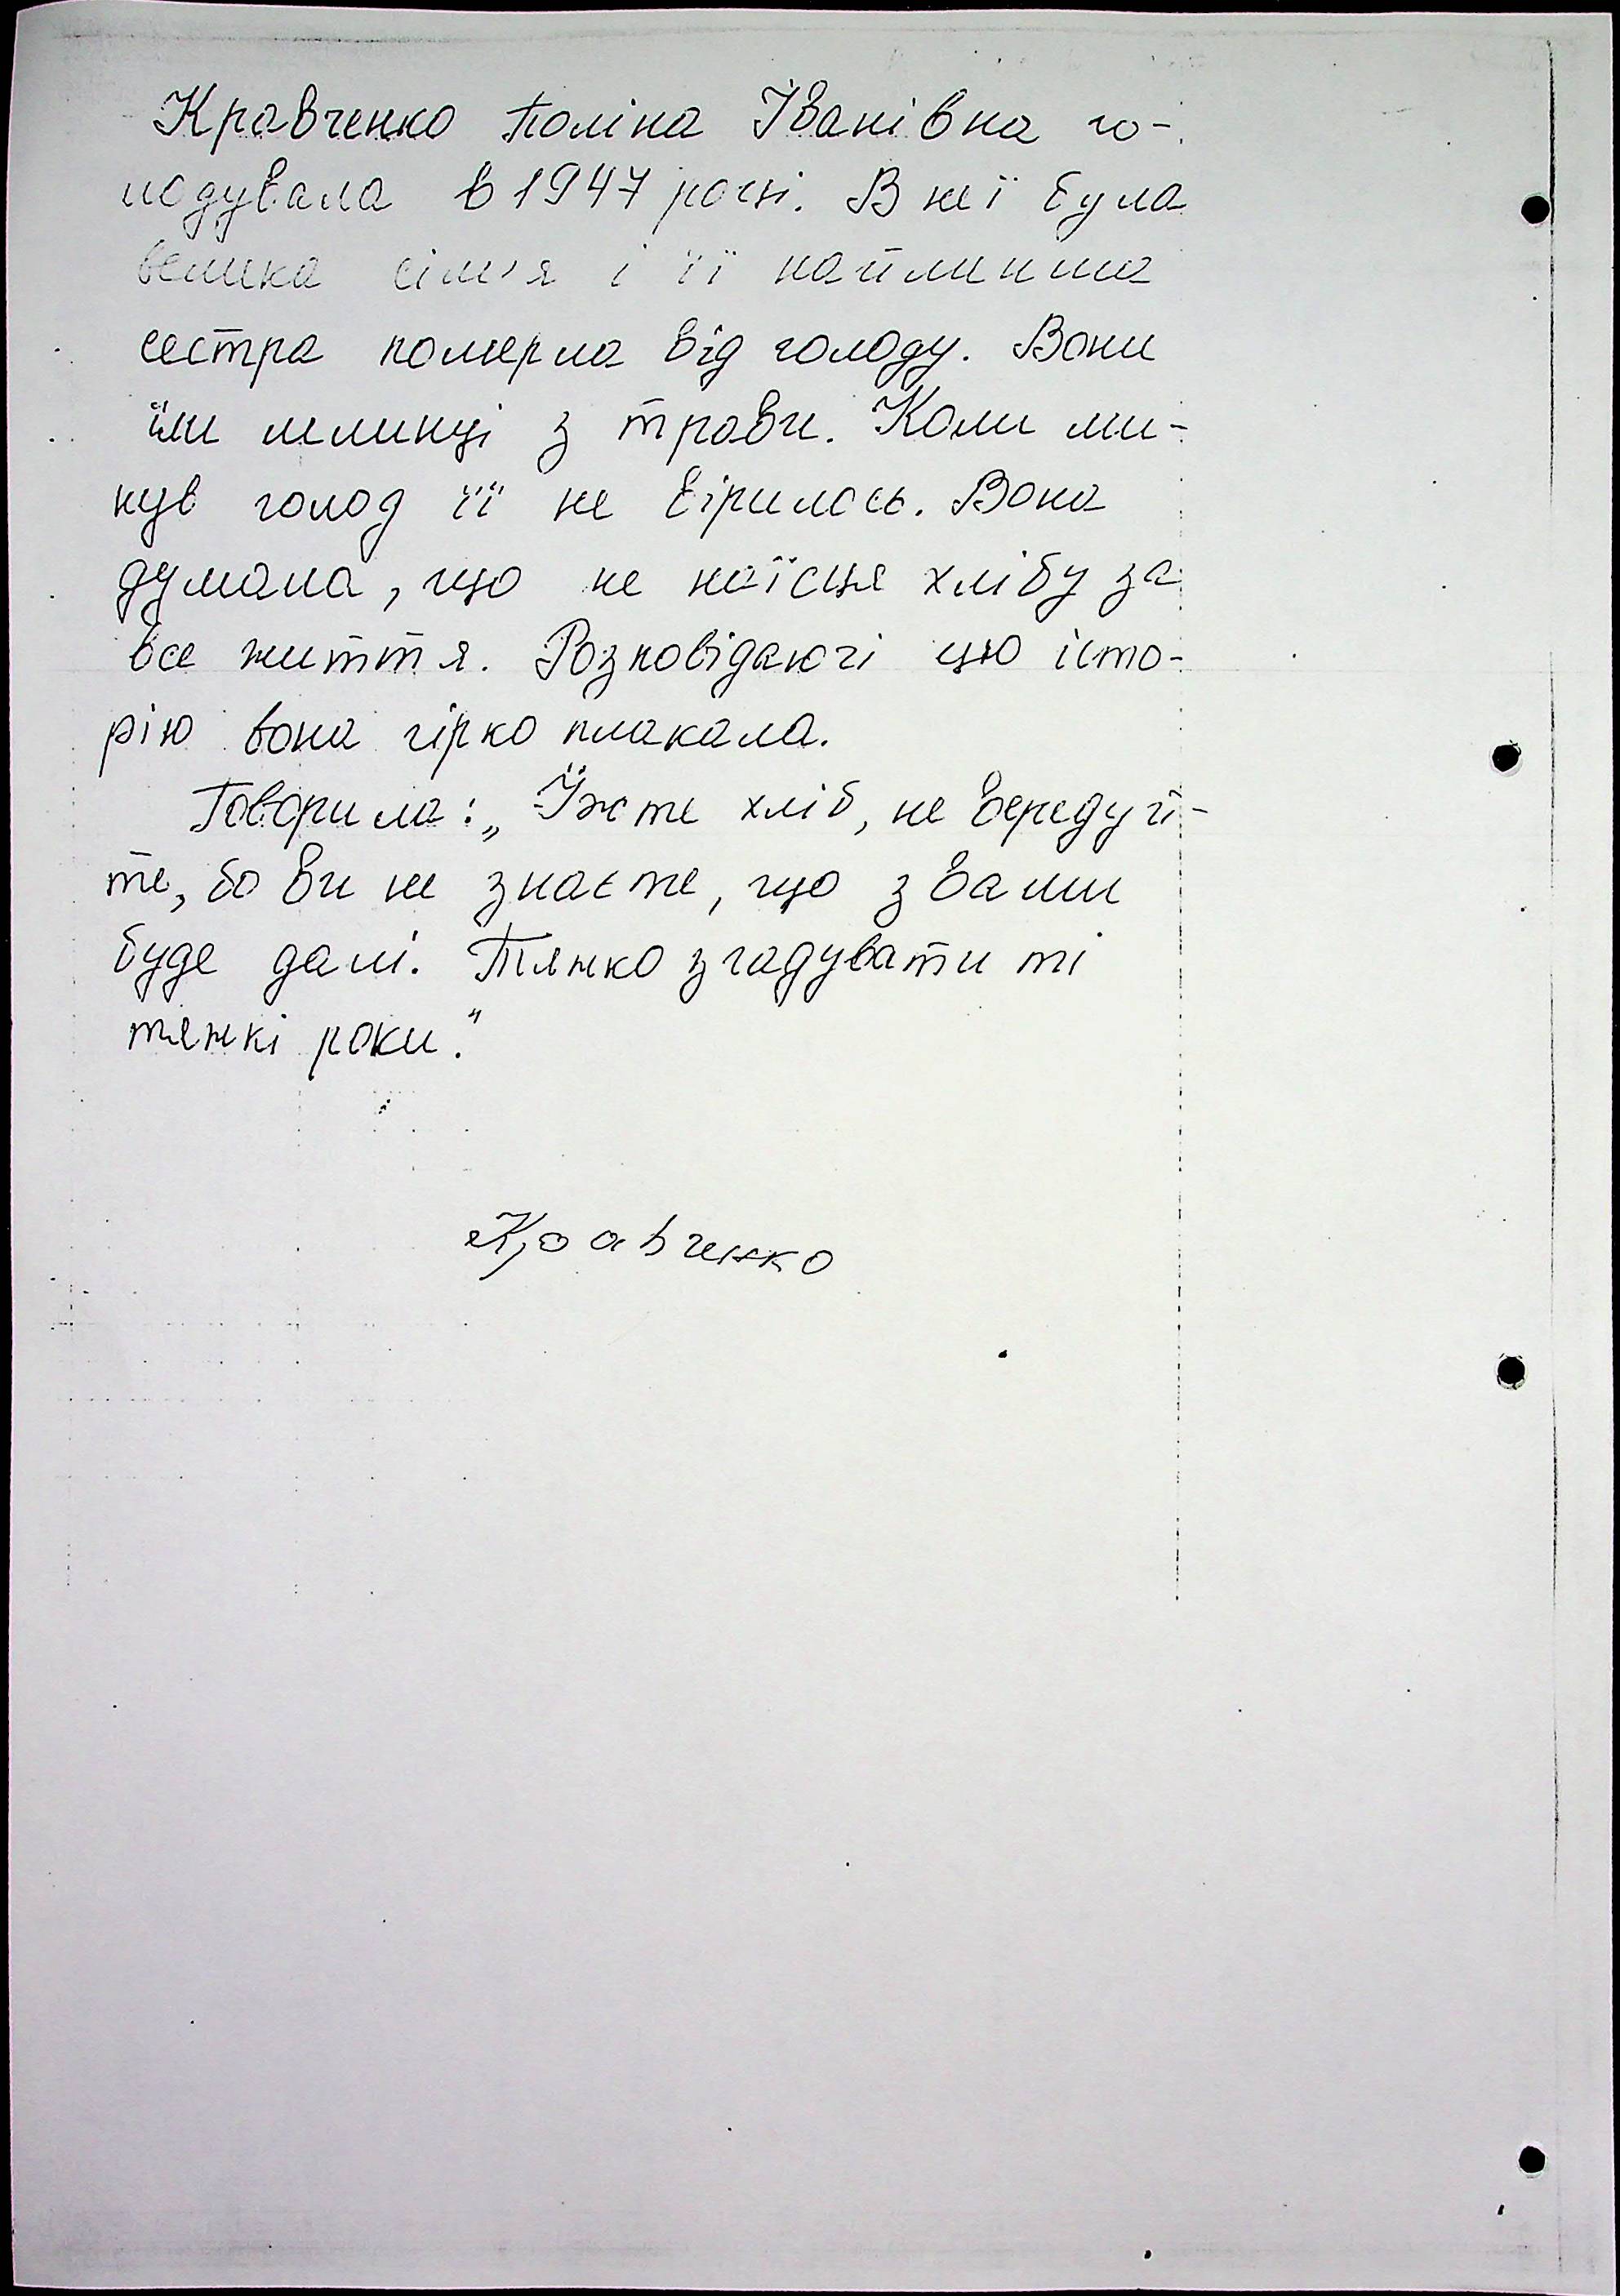 Кравченко Поліна Іванівна го-
лодувала в 1947 році. В неї була
велика сім'я і її найменша
сестра померла від голоду. Вони
їли млинці з трави. Коли ми-
нув голод її не вірилось. Вона
думала, що не наїсця хлібу за
все життя. Розповідаючі цю істо-
рію вона гірко плакала.
Говорила: „Їжте хліб, не вередуй-
те, бо ви не знаєте, що з вами
буде далі. Тяжко згадувати ті
тяжкі роки."
Кравченко